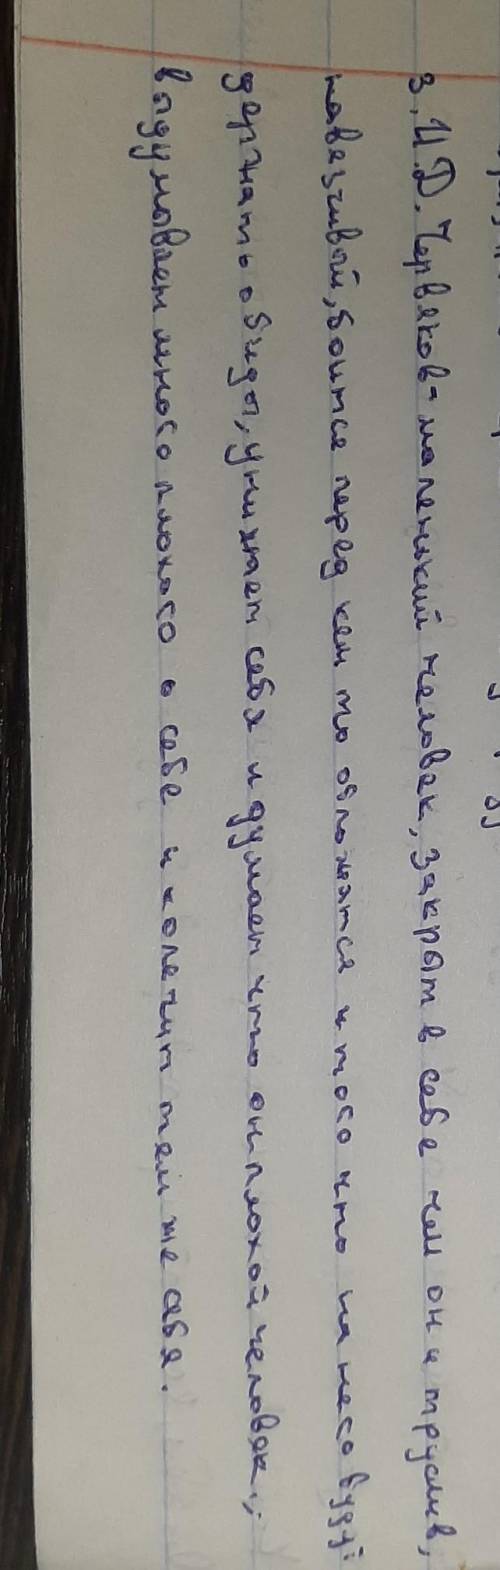 3. И.Д. Червяков - маленький человек, закрыт в себе чем он и труслив,
навезчивый, боится перед кем то обложатся и того что на него будут
держать обиды, унижает себя и думает что он плохой человек.,
выдумовает много плохого о себе и колечит тем же себя.